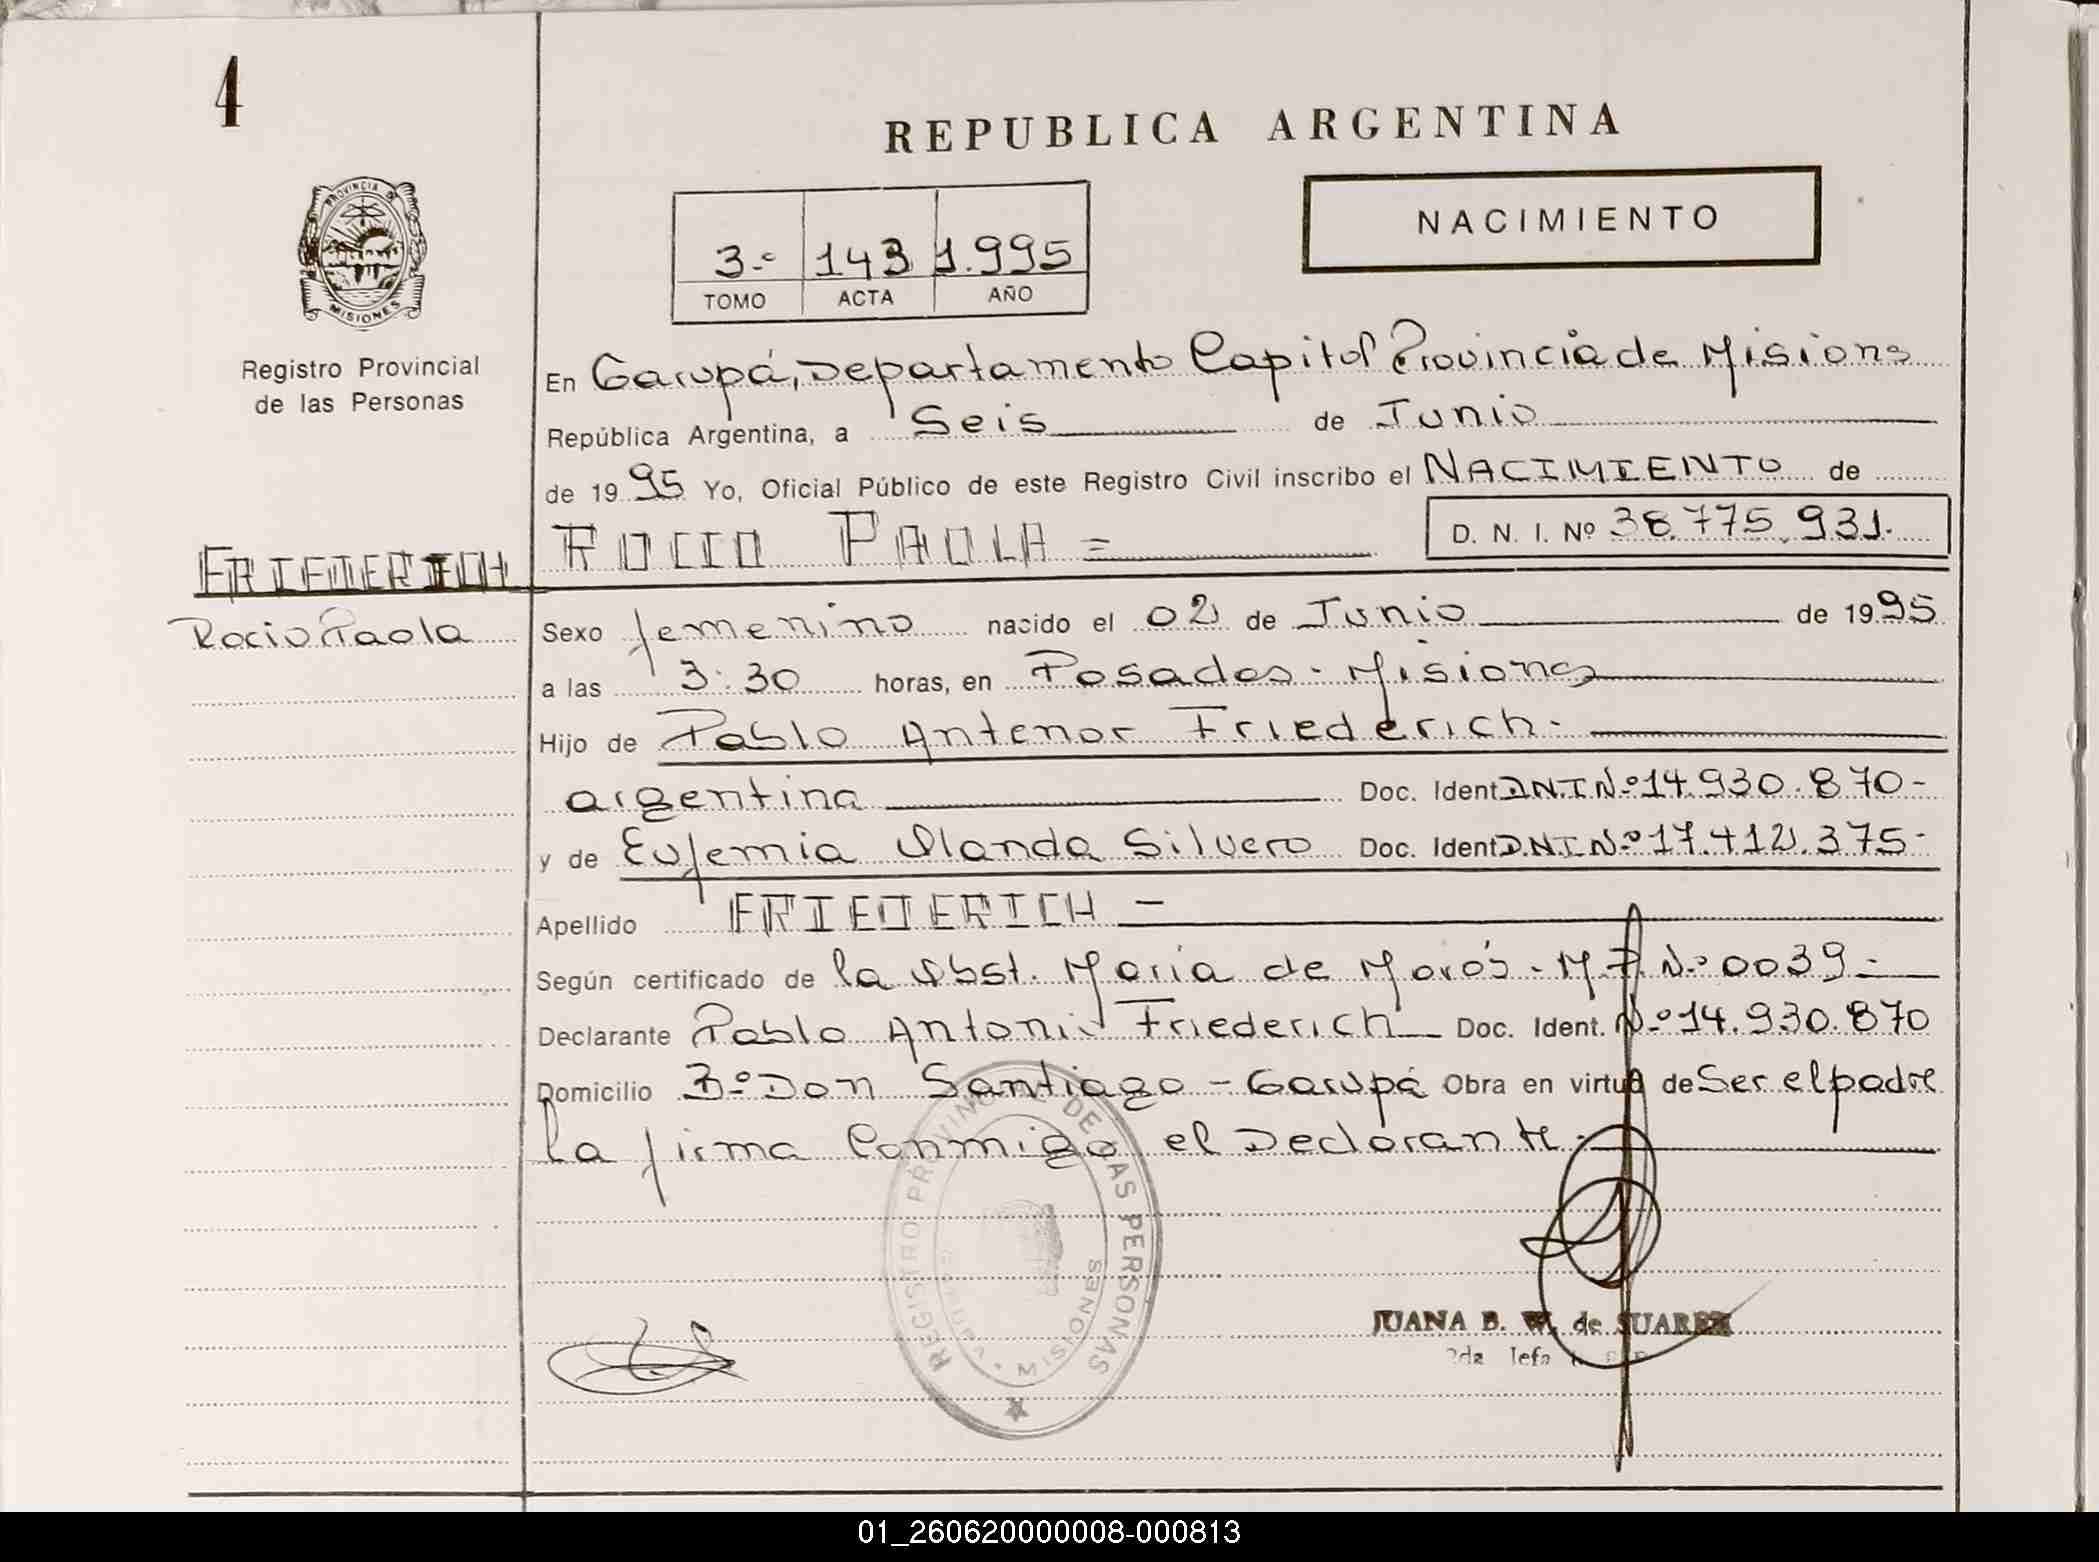 4
REPUBLICA ARGENTINA
PROVINCIA DE MISIONES
NACIMIENTO
3.º 143 1.995
TOMO ACTA AÑO
Registro Provincial
de las Personas
En Garupá, Departamento Capital Provincia de Misiones
República Argentina, a Seis de Junio
de 1995 Yo, Oficial Público de este Registro Civil inscribo el NACIMIENTO de
FRIEDERICH ROCIO PAOLA = D. N. I. Nº 38.775.931.
Rocio Paola
Sexo femenino nacido el 02 de Junio de 1995
a las 3:30 horas, en Posadas - Misiones
Hijo de Pablo Antenor Friederich.
argentina Doc. Ident D.N.I Nº 14.930.870-
y de Eufemia Olanda Silvero Doc. Ident D.N.I. Nº 17.412.375-
Apellido FRIEDERICH -
Según certificado de la Obst. Maria de - M.P. Nº 0039 -
Declarante Pablo Friederich Doc. Ident. Nº 14.930.870
Domicilio Bº Don Santiago - Garupá Obra en virtud de Ser el padre
la firma Conmigo el Declarante.
REGISTRO PROVINCIAL DE LAS PERSONAS
MISIONES
JUANA B. W. de SUAREZ
2da Jefa
01_260620000008-000813